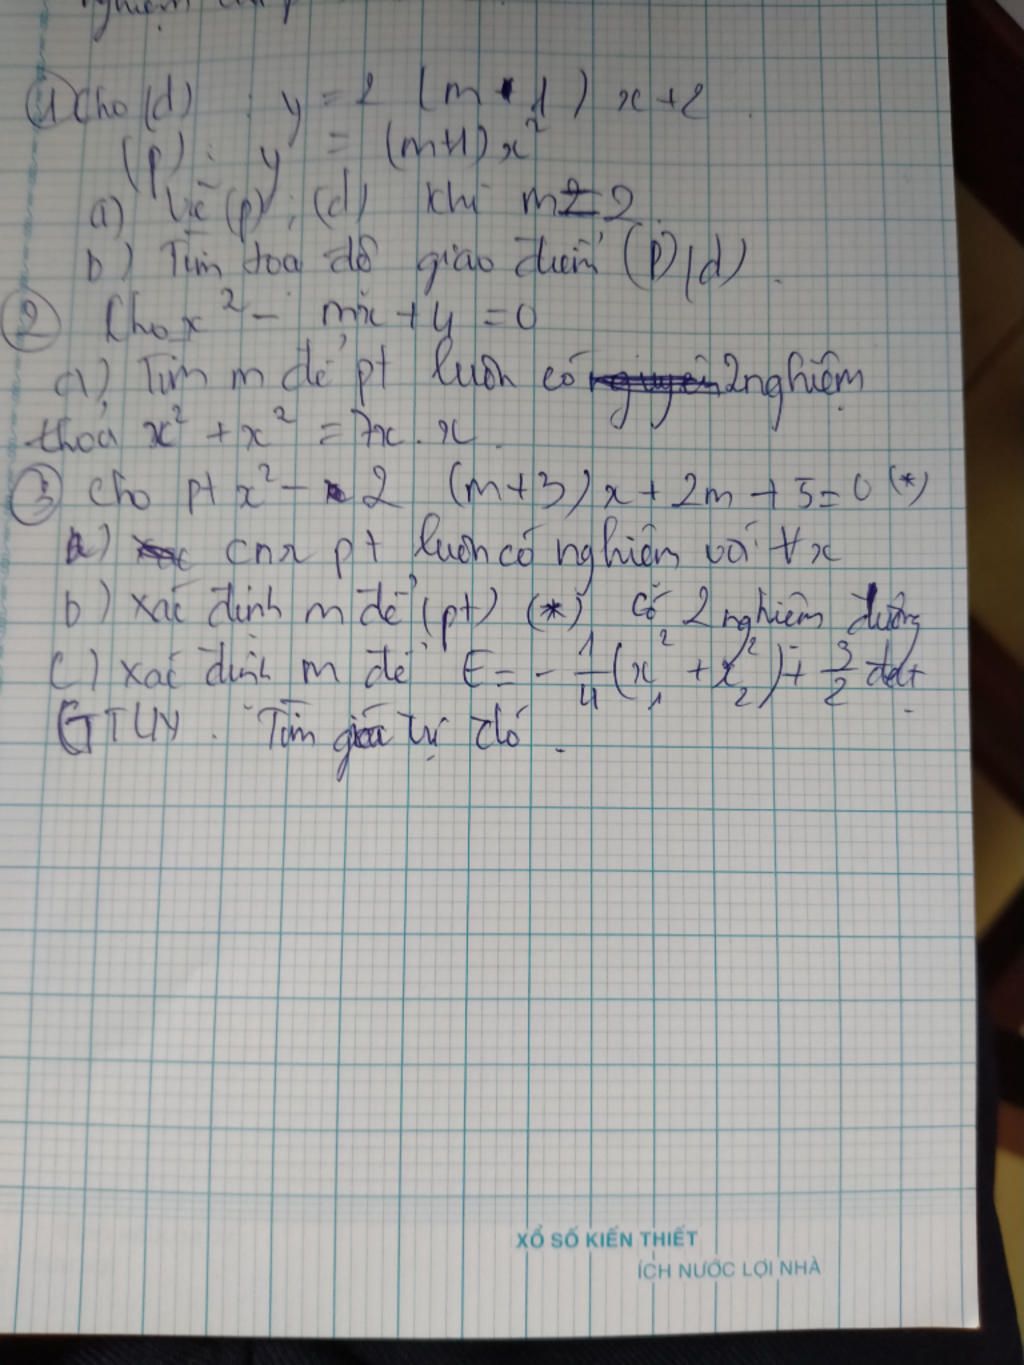 ① Cho (d) : y = 2 (m - 1) x + 2
(P) : y = (m+1) x²
a) Vẽ (P) ; (d) khi m = 2.
b) Tìm tọa độ giao điểm (P), (d).
② Cho x² - mx + 4 = 0
a) Tìm m để pt luôn có 2 nghiệm
thỏa x² + x² = 7x . x.
③ Cho pt x² - 2 (m+3) x + 2m + 5 = 0 (*)
a) cmr pt luôn có nghiệm với ∀x
b) xác định m để (pt) (*) có 2 nghiệm dương
c) xác định m để E = - 1/4 (x₁² + x₂²) + 3/2 đạt
GTLN. Tìm giá trị đó.
XỔ SỐ KIẾN THIẾT
ÍCH NƯỚC LỢI NHÀ